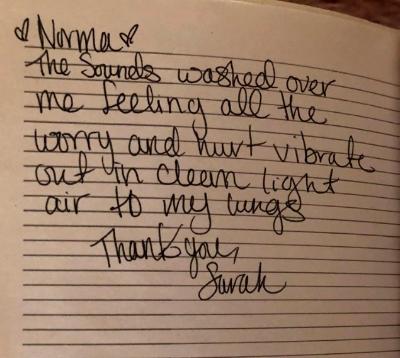 ♡ Norma ♡
The Sounds washed over
me feeling all the
worry and hurt vibrate
out in cleem light
air to my lungs
Thank you,
Sarah